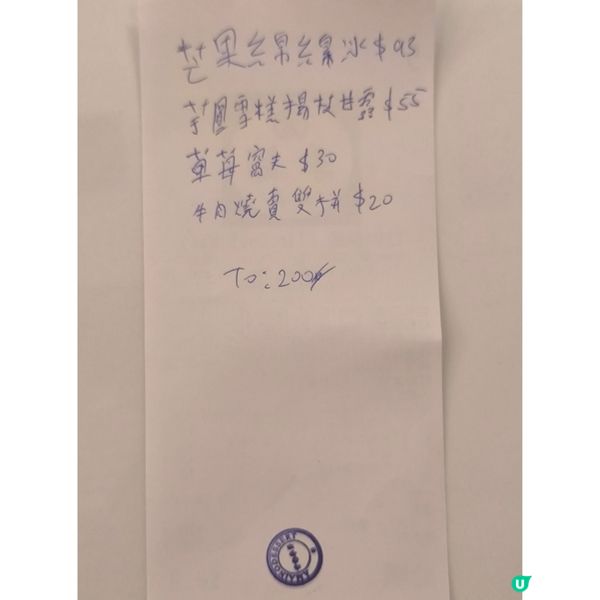 芒果綿綿冰$93
芋圓雪糕楊枝甘露$55
草莓窩夫$30
牛肉燒賣雙拼$20
To:200
DESSERT
U